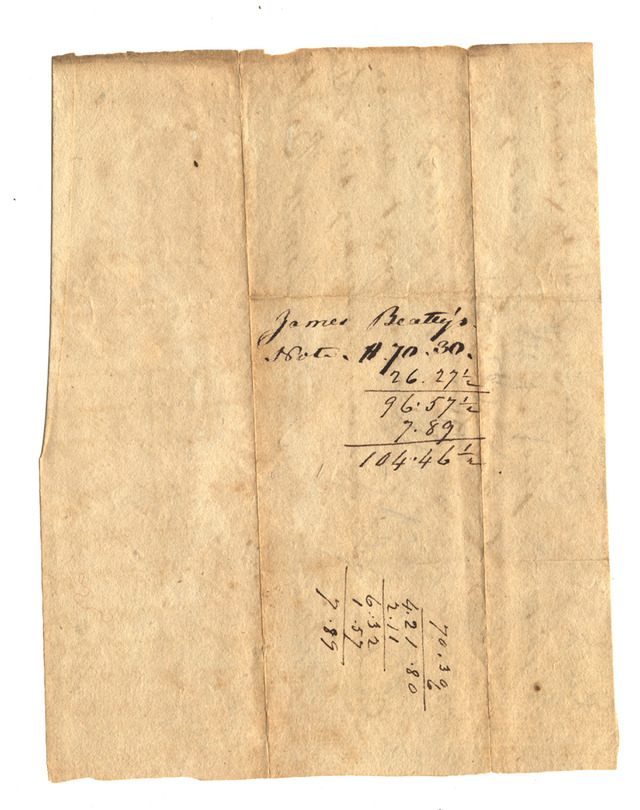 James Beaty's
Note. $.70.30.
26.27½
96.57½
7.89
104.46½
70.30
6
4.21.80
2.11
6.32
1.57
7.89